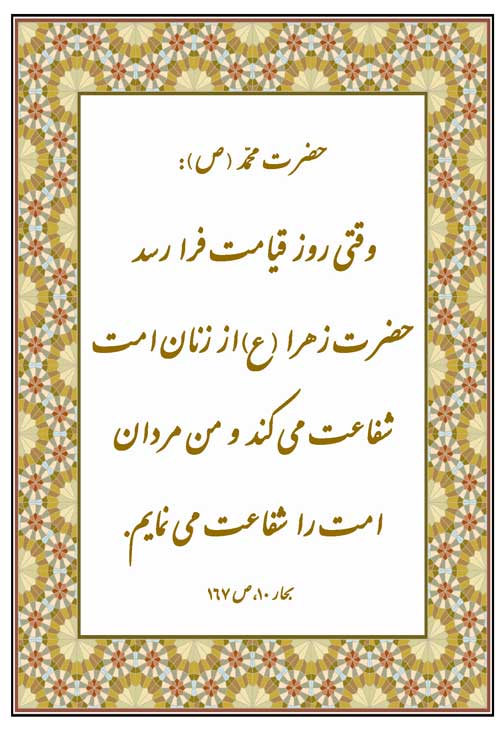 حضرت محمّد (ص):
وقتی روز قیامت فرا رسد
حضرت زهرا (ع) از زنان امت
شفاعت می کند و من مردان
امت را شفاعت می نمایم.
بحار ۱۰، ص ۱۶۷